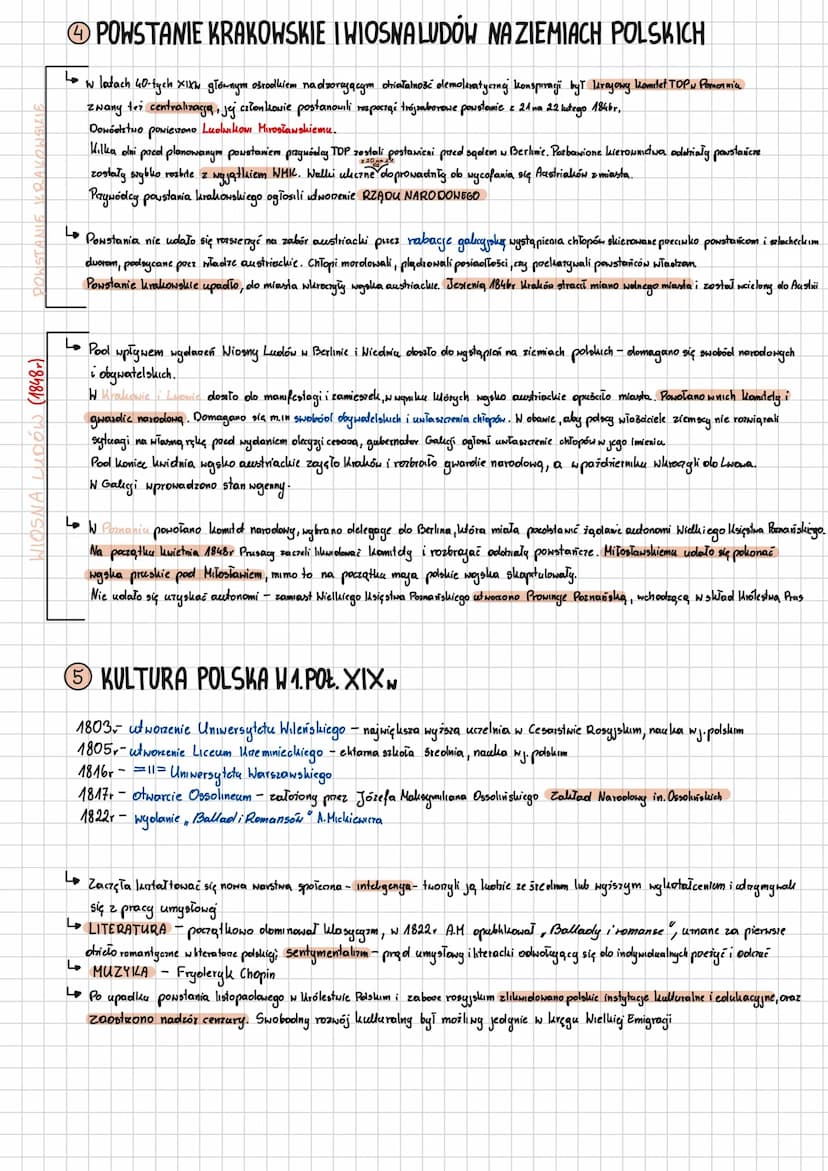 4 POWSTANIE KRAKOWSKIE I WIOSNA LUDÓW NA ZIEMIACH POLSKICH
POWSTANIE KRAKOWSKIE
W latach 40-tych XIXw głównym ośrodkiem nadzorującym działalność demokratycznej konspiracji był krajowy komitet TDP w Poznaniu
zwany też centralizacją, jej członkowie postanowili rozpocząć trójzaborowe powstanie z 21 na 22 lutego 1846r,
Dowództwo powierzono Ludwikowi Mirosławskiemu.
Kilka dni przed planowanym powstaniem przywódcy TDP zostali postawieni przed sądem w Berlinie. Pozbawione kierownictwa oddziały powstańcze
zostały szybko rozbite z wyjątkiem WMK. Walki uliczne doprowadziły do wycofania się Austriaków z miasta.
Przywódcy powstania krakowskiego ogłosili utworzenie RZĄDU NARODOWEGO
Powstania nie udało się rozszerzyć na zabór austriacki przez rabację galicyjską wystąpienia chłopów skierowane przeciwko powstańcom i szlacheckim
dworom, podsycane przez władze austriackie. Chłopi mordowali, plądrowali posiadłości, czy przekazywali powstańców władzom.
Powstanie krakowskie upadło, do miasta wkroczyły wojska austriackie. Jesienią 1846r Kraków stracił miano wolnego miasta i został wcielony do Austrii
WIOSNA LUDÓW (1848r)
Pod wpływem wydarzeń Wiosny Ludów w Berlinie i Wiedniu doszło do wystąpień na ziemiach polskich – domagano się swobód narodowych
i obywatelskich.
W Krakowie i Lwowie doszło do manifestacji i zamieszek, w wyniku których wojsko austriackie opuściło miasta. Powołano w nich komitety i
gwardie narodową. Domagano się m.in swobód obywatelskich i uwłaszczenia chłopów. W obawie, aby polscy właściciele ziemscy nie rozwiązali
sytuacji na własną rękę przed wydaniem decyzji cesarza, gubernator Galicji ogłosił uwłaszczenie chłopów w jego imieniu.
Pod koniec kwietnia wojsko austriackie zajęło Kraków i rozbroiło gwardie narodową, a w październiku wkroczyli do Lwowa.
W Galicji wprowadzono stan wojenny.
W Poznaniu powołano komitet narodowy, wybrano delegację do Berlina, która miała przedstawić żądanie autonomi Wielkiego Księstwa Poznańskiego.
Na początku kwietnia 1848r Prusacy zaczęli likwidować komitety i rozbrajać oddziały powstańcze. Miłosławskiemu udało się pokonać
wojska pruskie pod Miłosławiem, mimo to na początku maja polskie wojska skapitulowały.
Nie udało się uzyskać autonomi – zamiast Wielkiego Księstwa Poznańskiego utworzono Prowincję Poznańską, wchodzącą w skład Królestwa Prus
5 KULTURA POLSKA W 1. POŁ. XIXw
1803r- utworzenie Uniwersytetu Wileńskiego – największa wyższa uczelnia w Cesarstwie Rosyjskim, nauka w j. polskim
1805r- utworzenie Liceum Krzemienieckiego – elitarna szkoła średnia, nauka w j. polskim
1816r – =||= Uniwersytetu Warszawskiego
1817r – otwarcie Ossolineum – założony przez Józefa Maksymiliana Ossolińskiego Zakład Narodowy im. Ossolińskich
1822r – wydanie „Ballad i Romansów" A.Mickiewicza
Zaczęła kształtować się nowa warstwa społeczna – inteligencja – tworzyli ją ludzie ze średnim lub wyższym wykształceniem i utrzymywali
się z pracy umysłowej
LITERATURA – początkowo dominował klasycyzm, w 1822r A.M opublikował „Ballady i romanse", uznane za pierwsze
dzieło romantyczne w literaturze polskiej; sentymentalizm – prąd umysłowy i literacki odwołujący się do indywidualnych przeżyć i odczuć
MUZYKA – Fryderyk Chopin
Po upadku powstania listopadowego w Królestwie Polskim i zaborze rosyjskim zlikwidowano polskie instytucje kulturalne i edukacyjne, oraz
zaostrzono nadzór cenzury. Swobodny rozwój kulturalny był możliwy jedynie w kręgu Wielkiej Emigracji